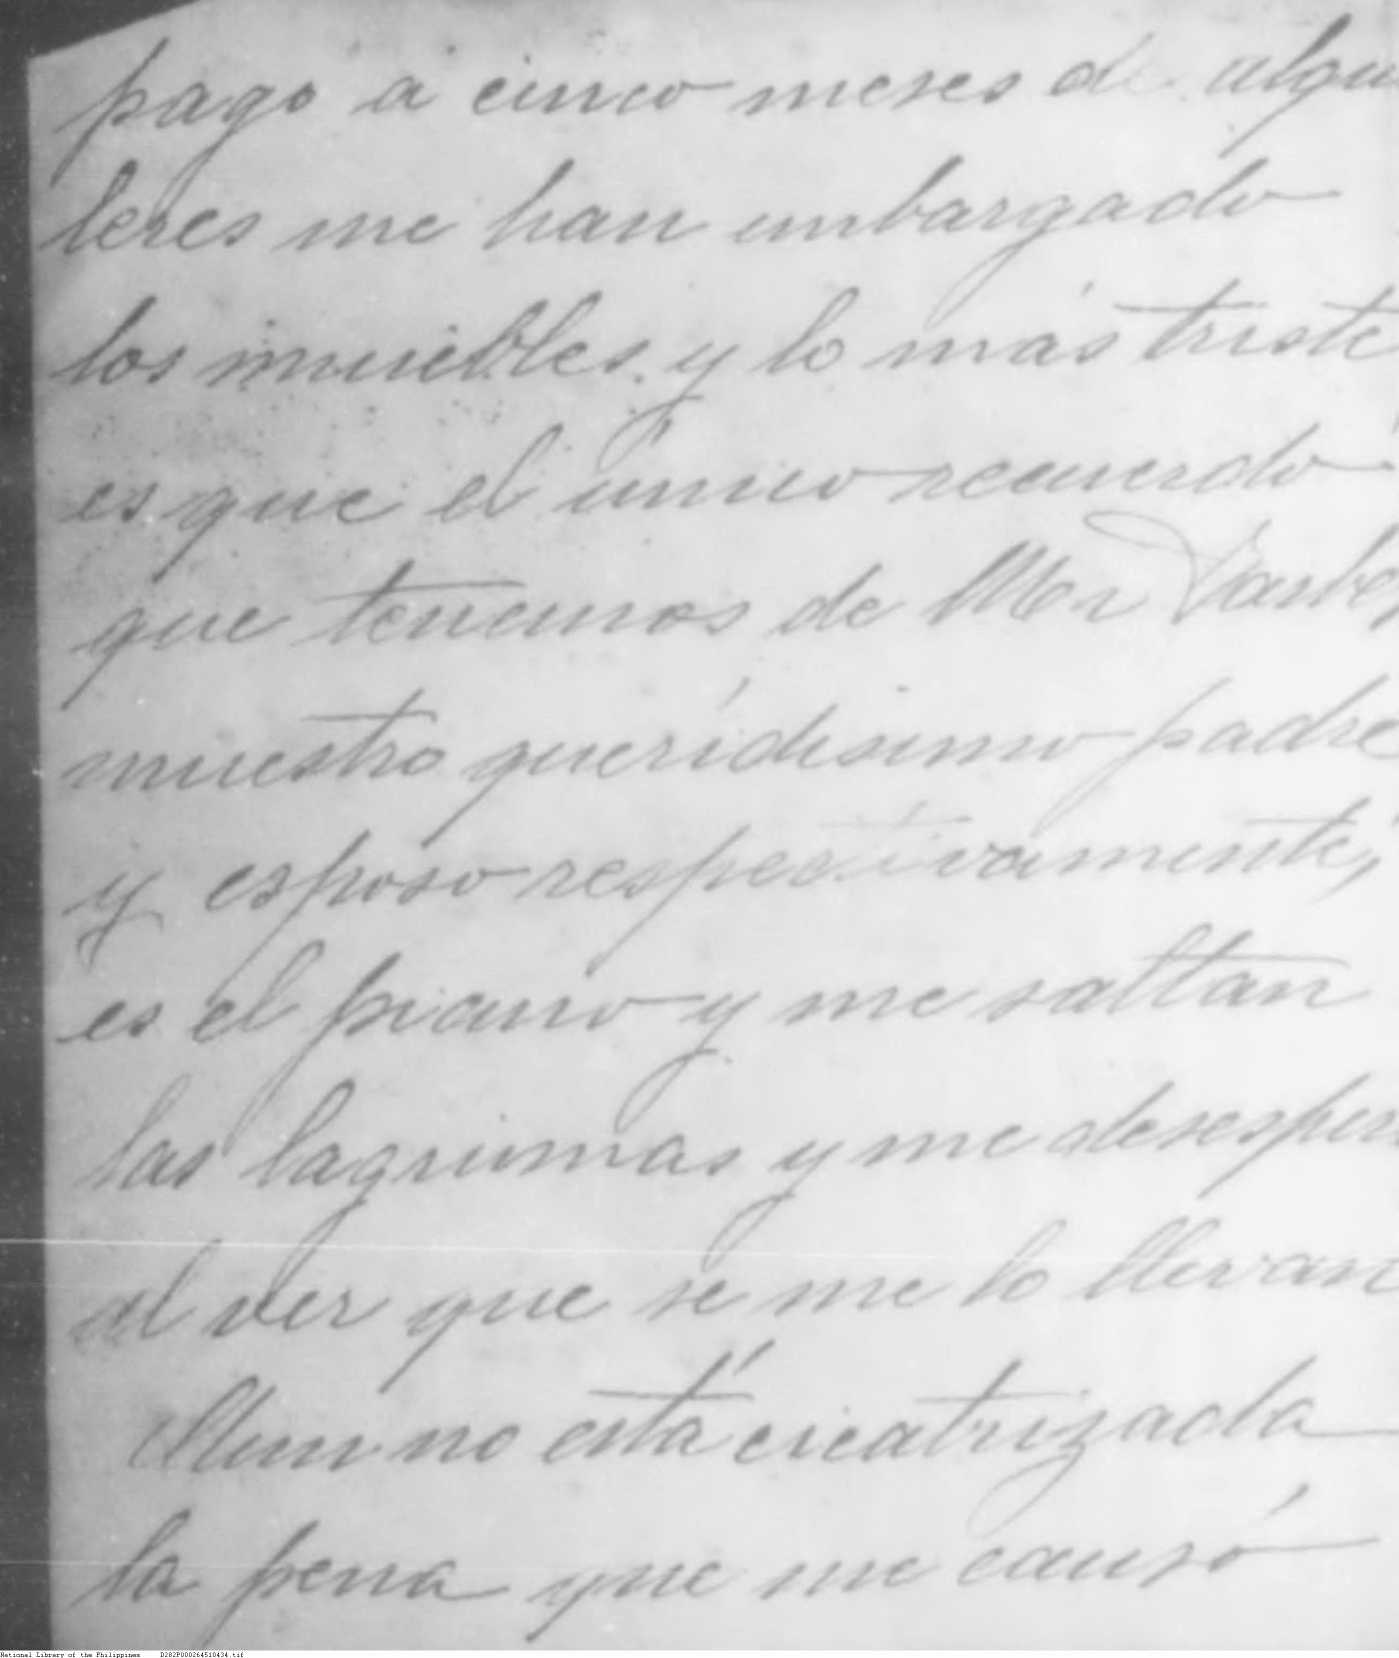 pago a cinco meses de alqui
leres me han embargado
los muebles. y lo más triste
es que el único recuerdo
que tenemos de
nuestro queridísimo padre
y esposo respectivamente,
es el piano y me saltan
las lagrimas y me desesper
al ver que se me lo llevan
no está cicatrizada
la pena que me causó
National Library of the Philippines D282P000264510434.tif